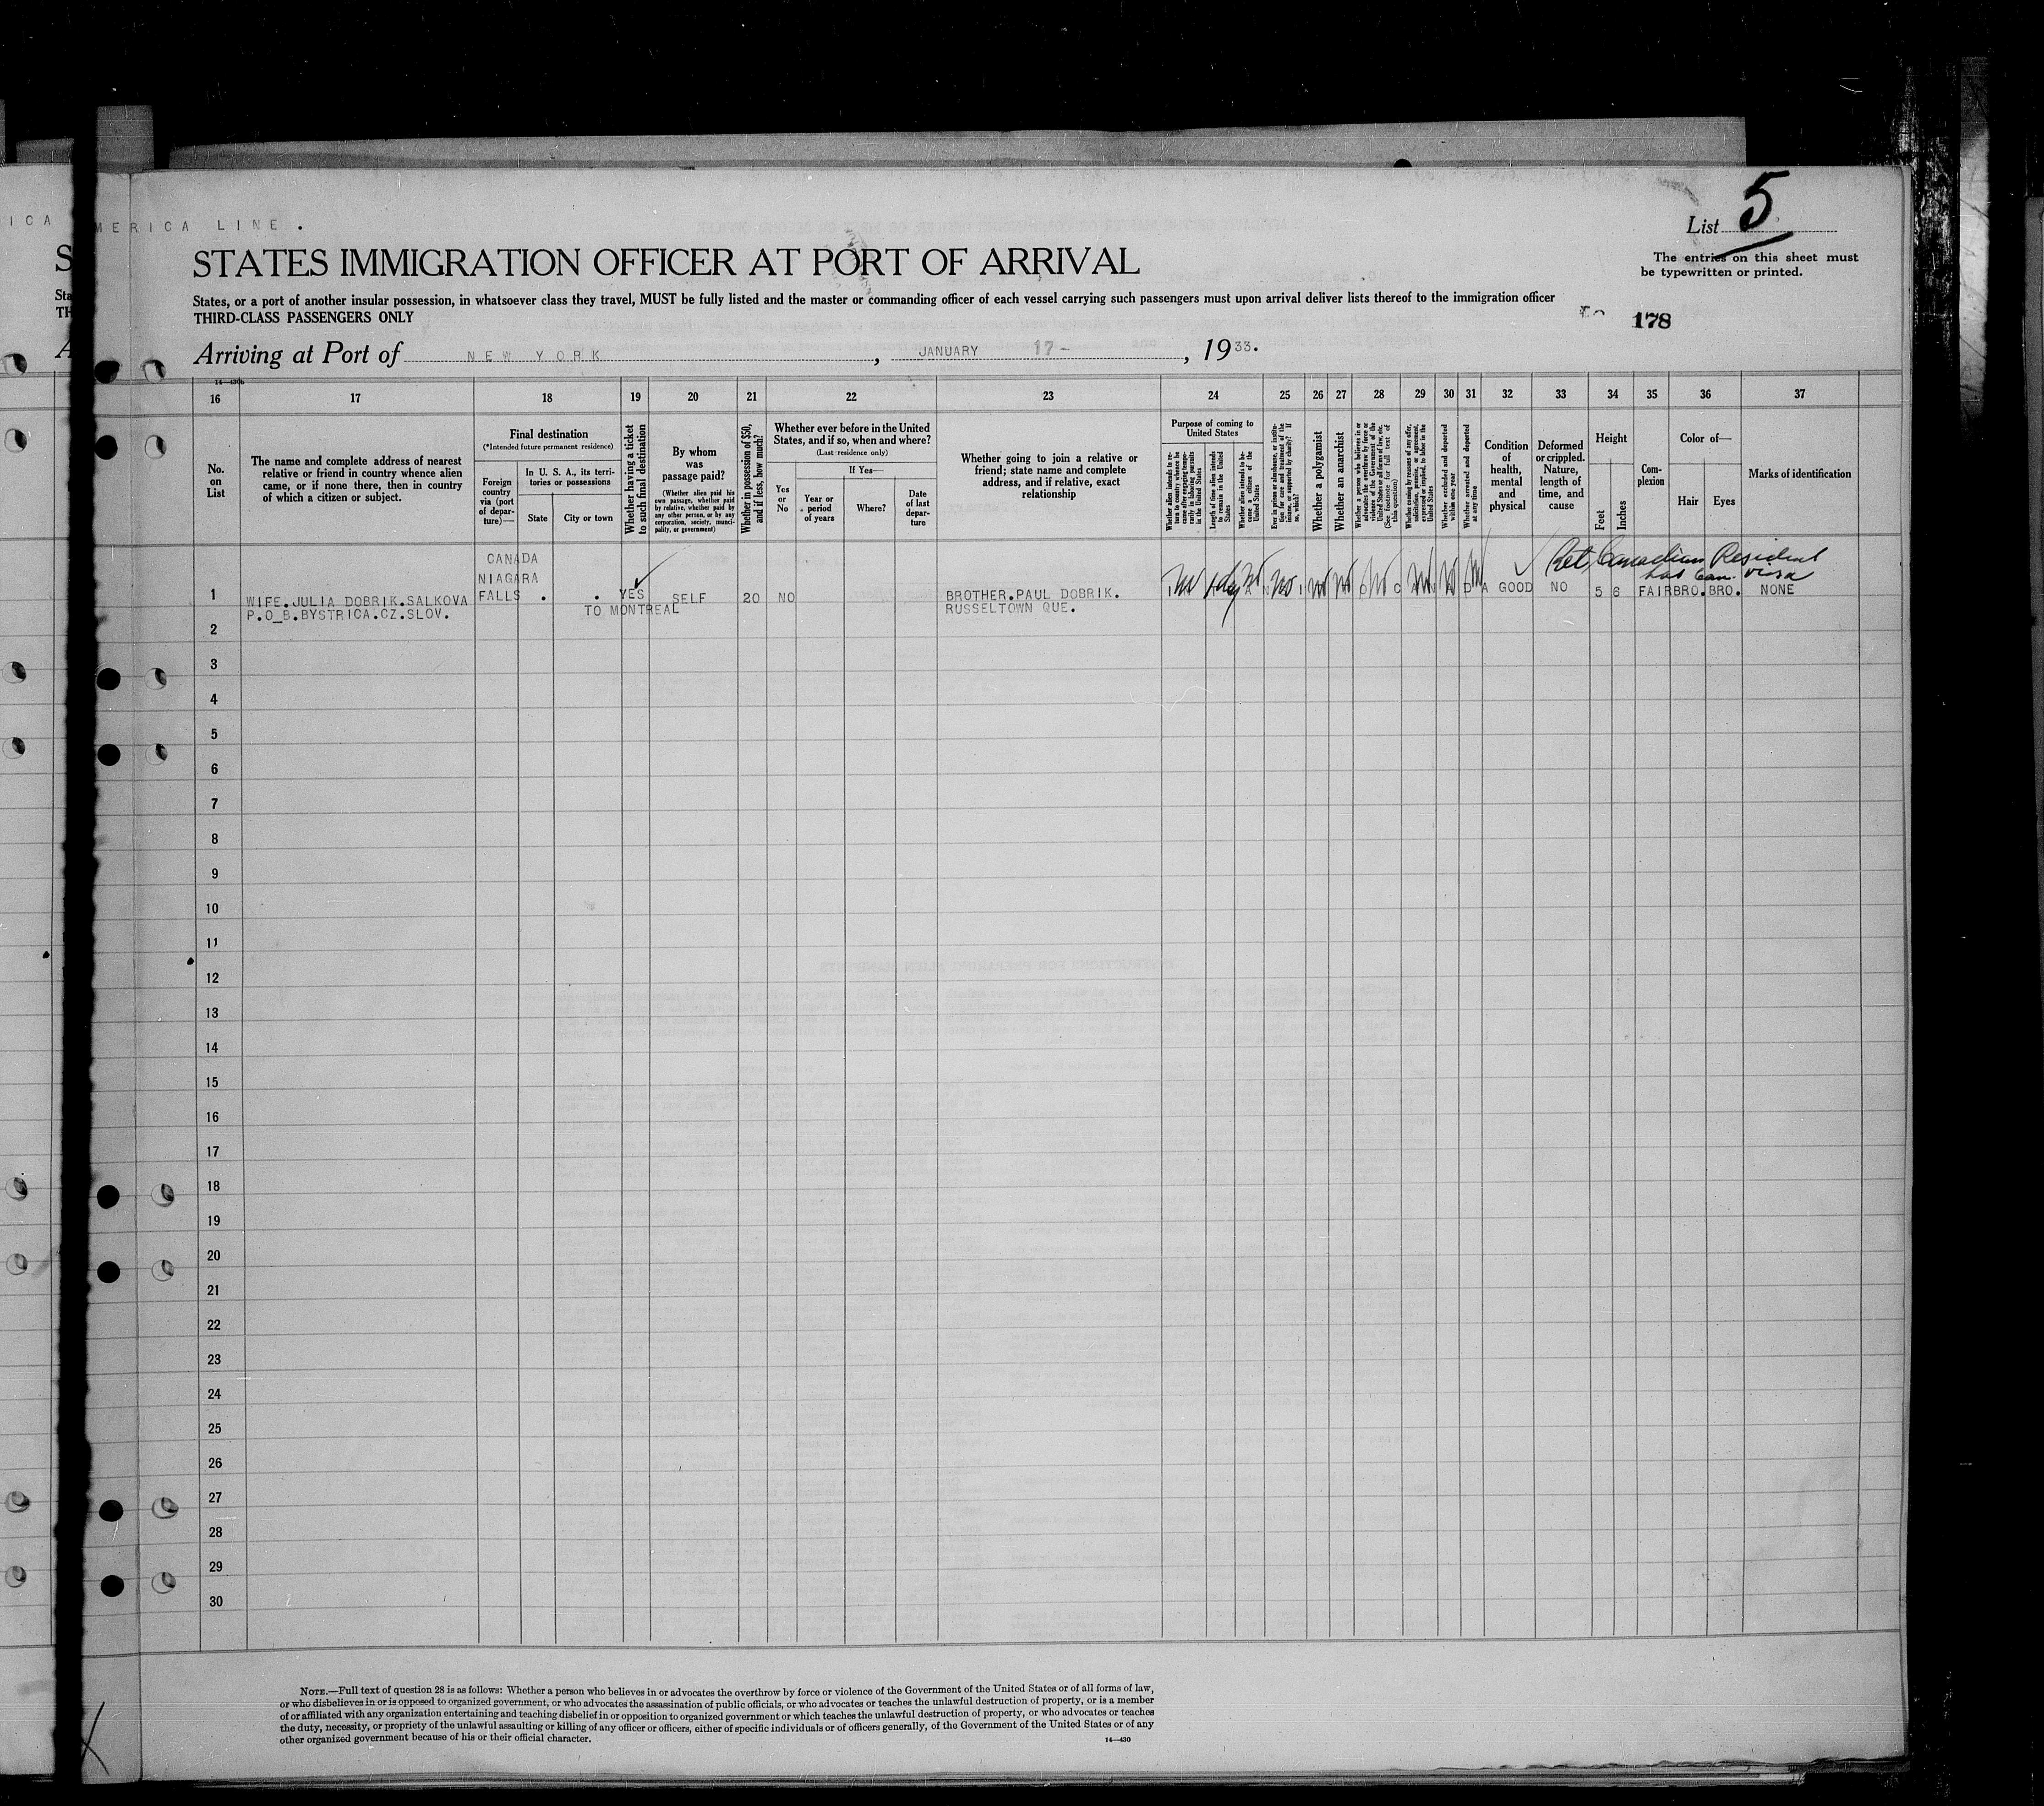 ICA
MERICA LINE.
List 5
STATES IMMIGRATION OFFICER AT PORT OF ARRIVAL
The entries on this sheet must
be typewritten or printed.
States, or a port of another insular possession, in whatsoever class they travel, MUST be fully listed and the master or commanding officer of each vessel carrying such passengers must upon arrival deliver lists thereof to the immigration officer
THIRD-CLASS PASSENGERS ONLY
178
Arriving at Port of NEW YORK, JANUARY 17-, 1933.
14—430b
16 17 18 19 20 21 22 23 24 25 26 27 28 29 30 31 32 33 34 35 36 37
No. on List
The name and complete address of nearest relative or friend in country whence alien came, or if none there, then in country of which a citizen or subject.
Final destination
(*Intended future permanent residence)
Foreign country via (port of departure)—
In U. S. A., its territories or possessions
State
City or town
Whether having a ticket to such final destination
By whom was passage paid?
(Whether alien paid his own passage, whether paid by relative, whether paid by any other person, or by any corporation, society, municipality, or government)
Whether in possession of $50, and if less, how much?
Whether ever before in the United States, and if so, when and where?
(Last residence only)
Yes or No
If Yes—
Year or period of years
Where?
Date of last departure
Whether going to join a relative or friend; state name and complete address, and if relative, exact relationship
Purpose of coming to United States
Whether alien intends to return to country whence he came after engaging temporarily in laboring pursuits in the United States
Length of time alien intends to remain in the United States
Whether alien intends to become a citizen of the United States
Ever in prison or almshouse, or institution for care and treatment of the insane, or supported by charity? If so, which?
Whether a polygamist
Whether an anarchist
Whether a person who believes in or advocates the overthrow by force or violence of the Government of the United States or all forms of law, etc. (See footnote for full text of this question)
Whether coming by reasons of any offer, solicitation, promise, or agreement, expressed or implied, to labor in the United States
Whether excluded and deported within one year
Whether arrested and deported at any time
Condition of health, mental and physical
Deformed or crippled. Nature, length of time, and cause
Height
Feet
Inches
Complexion
Color of—
Hair
Eyes
Marks of identification
Ret. Canadian Resident
has Can. Visa
CANADA
NIAGARA
1 WIFE.JULIA DOBRIK.SALKOVA FALLS . . YES SELF 20 NO BROTHER.PAUL DOBRIK. No No No No No No No No GOOD NO 5 6 FAIR BRO. BRO. NONE
P.O_B.BYSTRICA.CZ.SLOV. TO MONTREAL RUSSELTOWN QUE.
2
3
4
5
6
7
8
9
10
11
12
13
14
15
16
17
18
19
20
21
22
23
24
25
26
27
28
29
30
NOTE.—Full text of question 28 is as follows: Whether a person who believes in or advocates the overthrow by force or violence of the Government of the United States or of all forms of law,
or who disbelieves in or is opposed to organized government, or who advocates the assassination of public officials, or who advocates or teaches the unlawful destruction of property, or is a member
of or affiliated with any organization entertaining and teaching disbelief in or opposition to organized government or which teaches the unlawful destruction of property, or who advocates or teaches
the duty, necessity, or propriety of the unlawful assaulting or killing of any officer or officers, either of specific individuals or of officers generally, of the Government of the United States or of any
other organized government because of his or their official character.
14—430